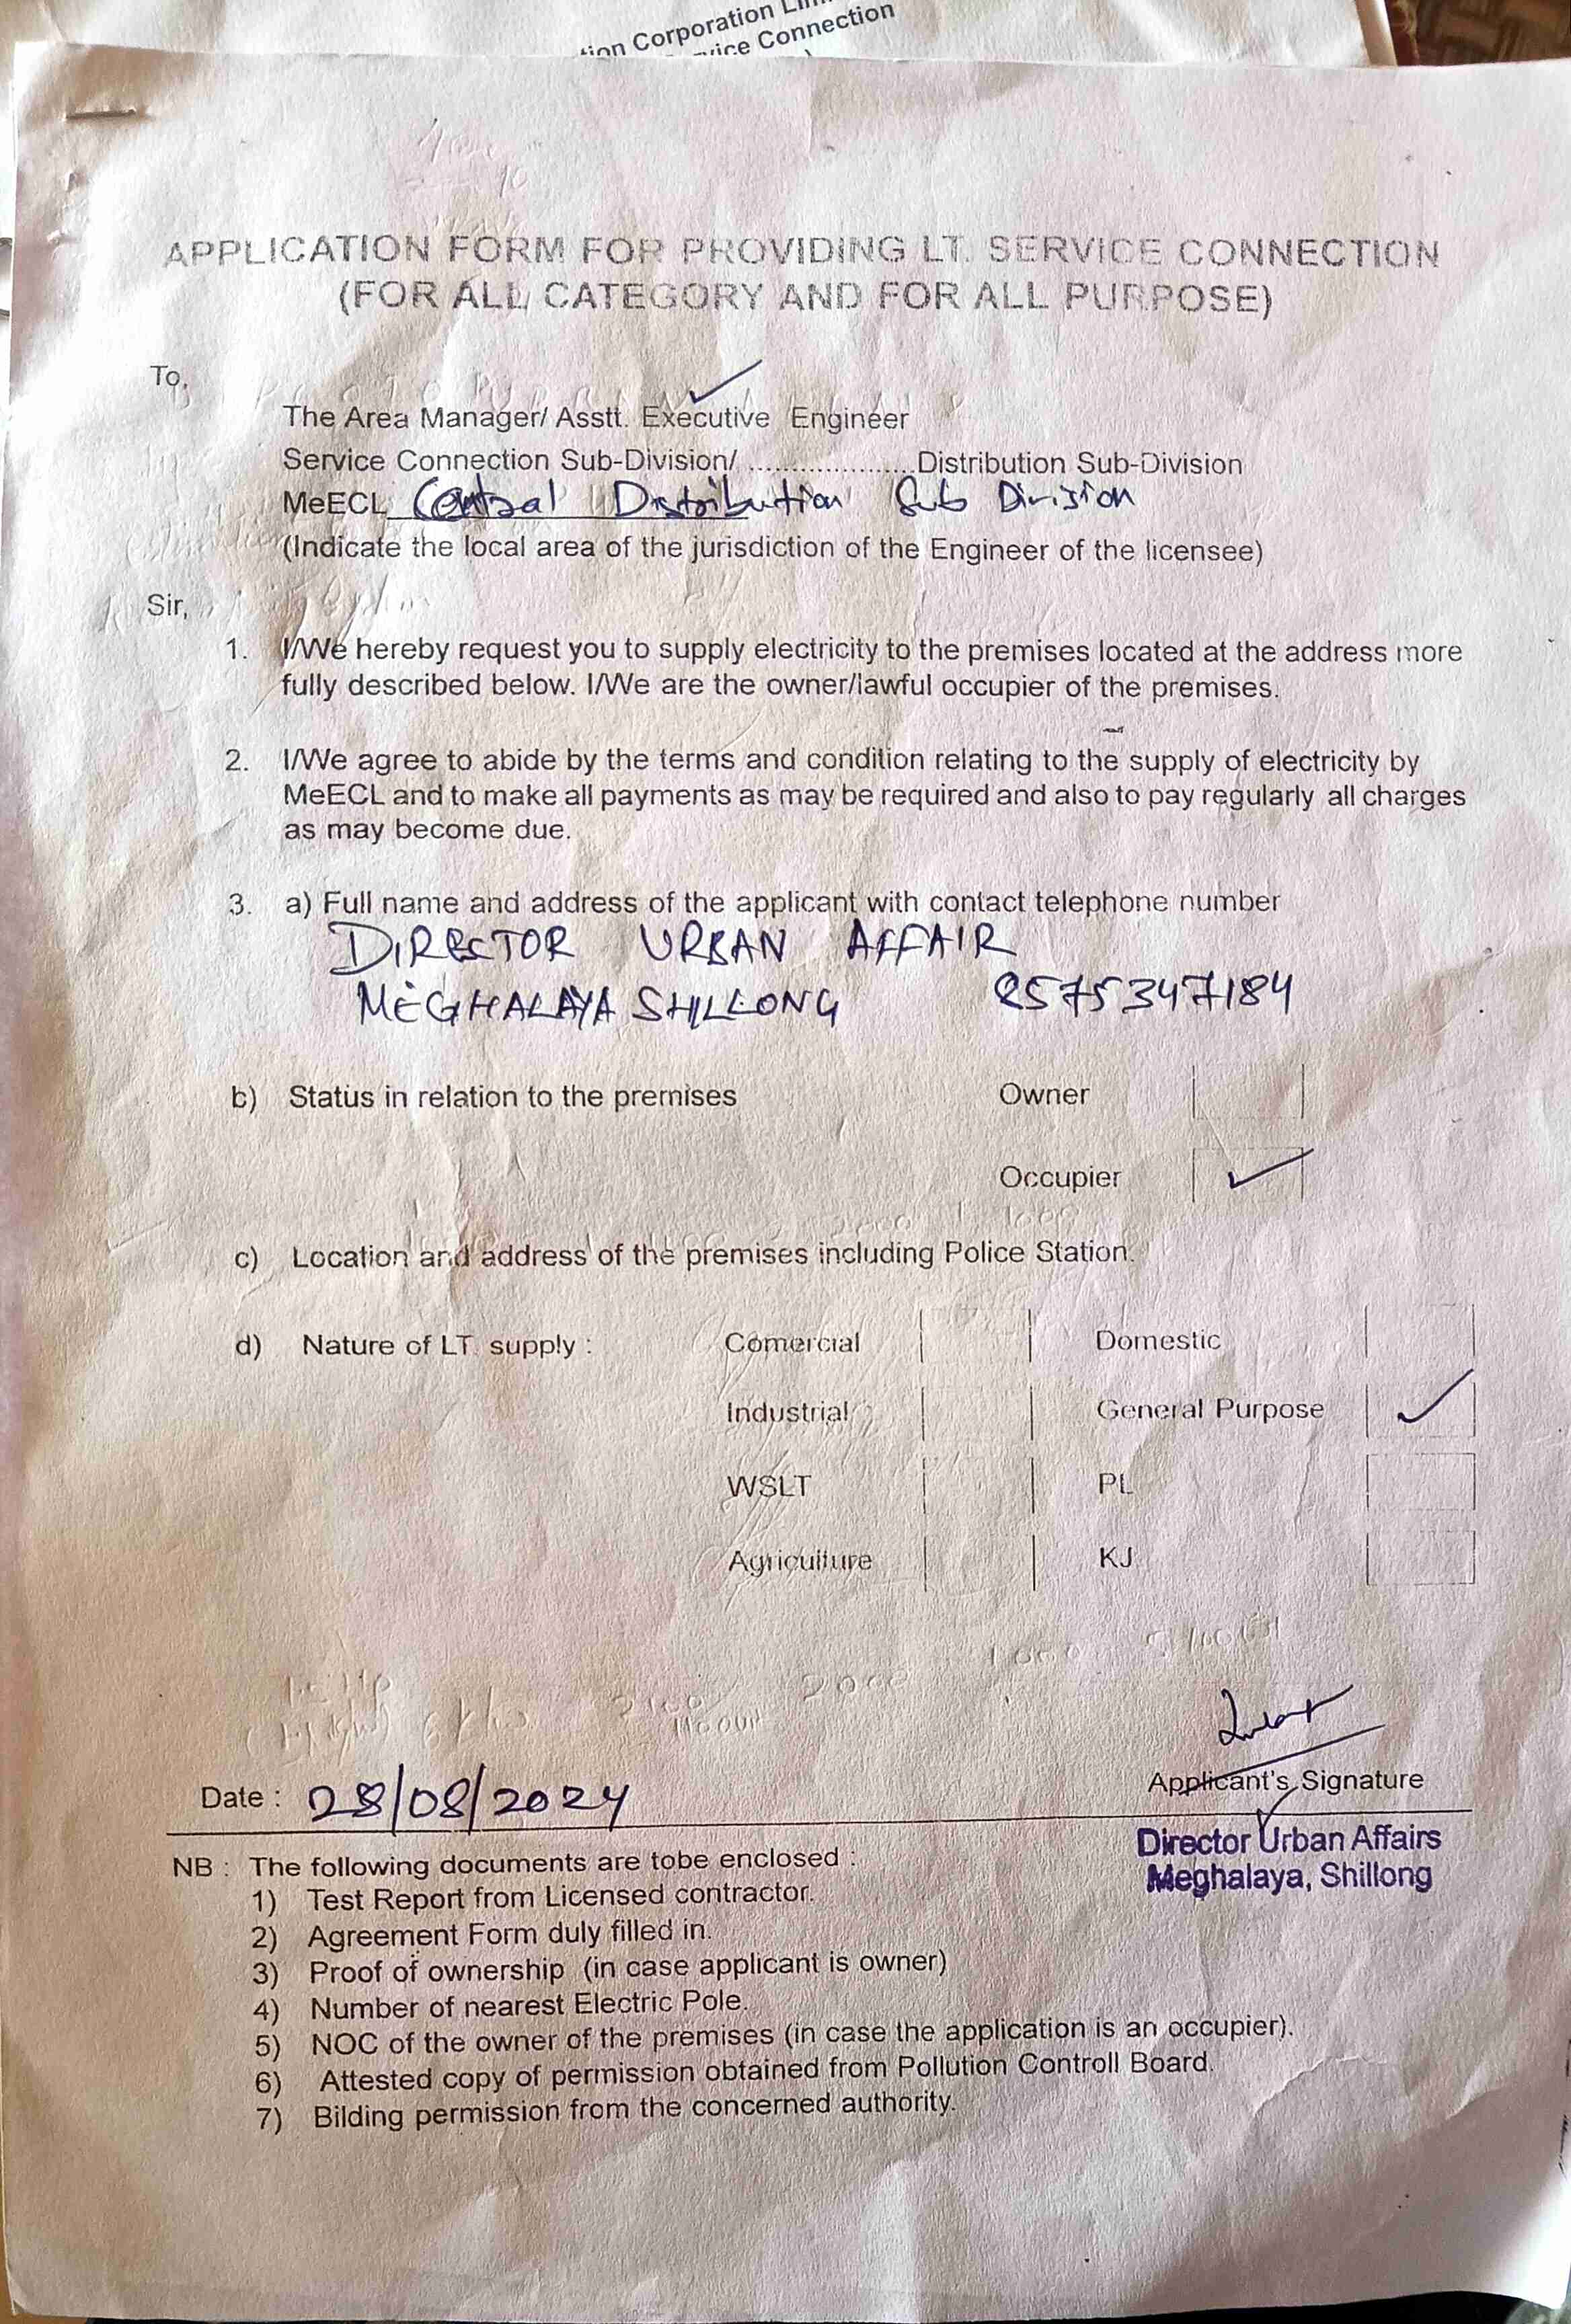 tion Corporation
vice Connection
APPLICATION FORM FOR PROVIDING LT. SERVICE CONNECTION
(FOR ALL CATEGORY AND FOR ALL PURPOSE)
To,
The Area Manager/ Asstt. Executive Engineer
Service Connection Sub-Division/ ...................Distribution Sub-Division
MeECL Central Distribution Sub Division
(Indicate the local area of the jurisdiction of the Engineer of the licensee)
Sir,
1. I/We hereby request you to supply electricity to the premises located at the address more
fully described below. I/We are the owner/lawful occupier of the premises.
2. I/We agree to abide by the terms and condition relating to the supply of electricity by
MeECL and to make all payments as may be required and also to pay regularly all charges
as may become due.
3. a) Full name and address of the applicant with contact telephone number
DIRECTOR URBAN AFFAIR
MEGHALAYA SHILLONG 8575347184
b) Status in relation to the premises Owner
Occupier ✓
c) Location and address of the premises including Police Station.
d) Nature of LT. supply : Comercial Domestic
Industrial General Purpose ✓
WSLT PL
Agriculture KJ
Date : 28/08/2024
Applicant's Signature
Director Urban Affairs
Meghalaya, Shillong
NB : The following documents are tobe enclosed :
1) Test Report from Licensed contractor.
2) Agreement Form duly filled in.
3) Proof of ownership (in case applicant is owner)
4) Number of nearest Electric Pole.
5) NOC of the owner of the premises (in case the application is an occupier).
6) Attested copy of permission obtained from Pollution Controll Board.
7) Bilding permission from the concerned authority.